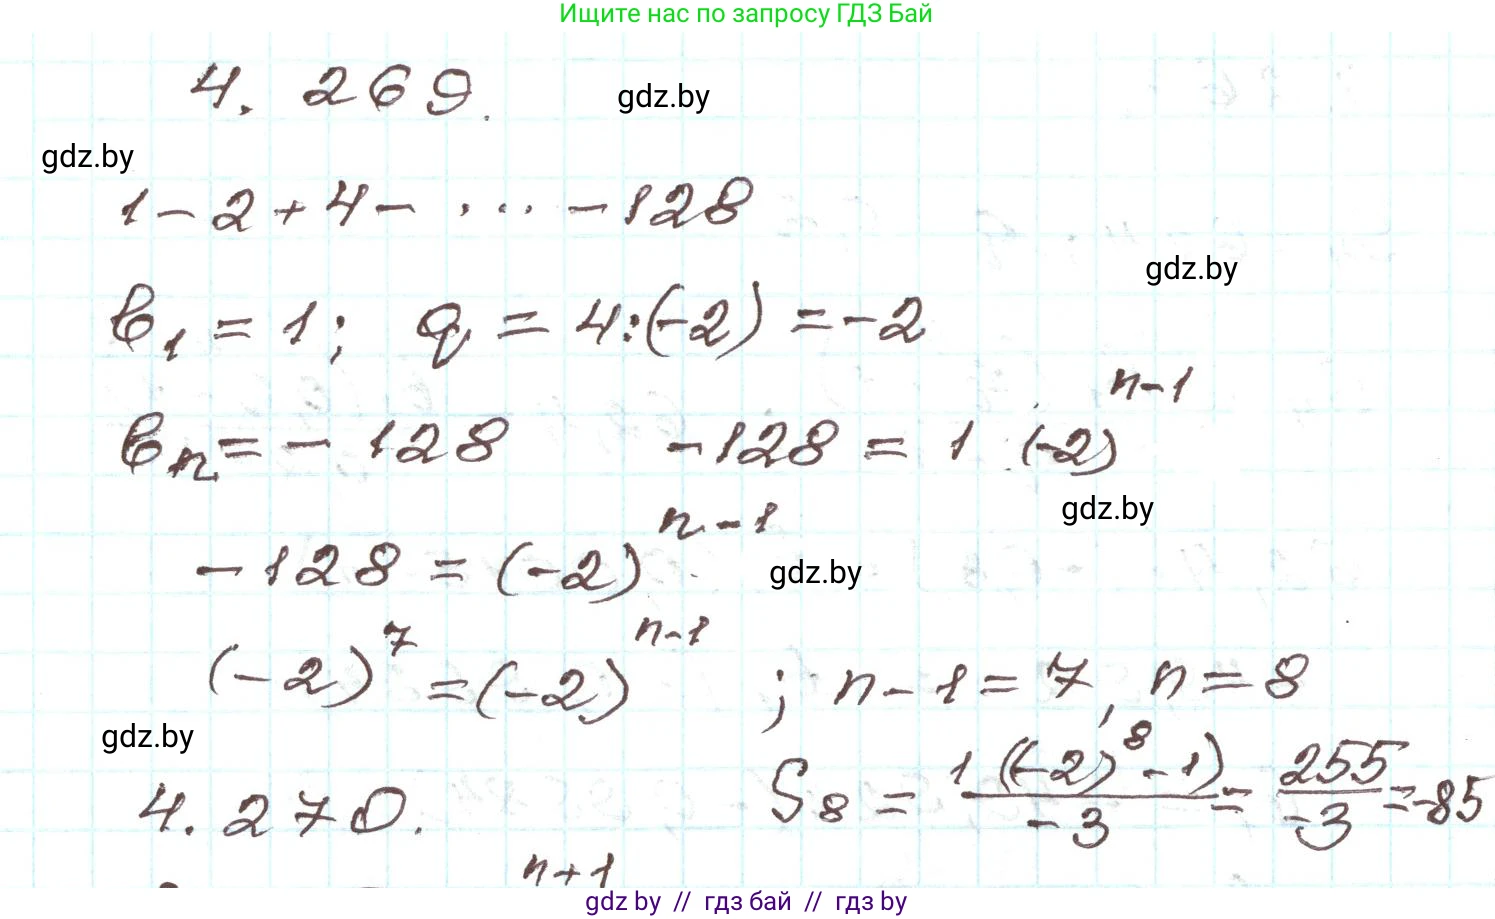 Ищите нас по запросу ГДЗ Бай
4. 269.
gdz.by
gdz.by
1 - 2 + 4 - . . . - 128
gdz.by
b₁ = 1; q = 4:(-2) = -2
bₙ = - 128 -128 = 1 · (-2)ⁿ⁻¹
gdz.by
-128 = (-2)ⁿ⁻¹
gdz.by
(-2)⁷ = (-2)ⁿ⁻¹ ; n - 1 = 7, n = 8
gdz.by
S₈ = 1((-2)⁸ - 1)/-3 = 255/-3 = -85
4. 270.
n+1
gdz by // гдз бай // гдз by